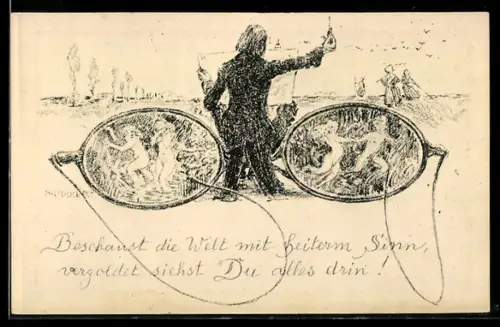 Beschaust die Welt mit heiterm Sinn,
vergoldet siehst Du alles drin!